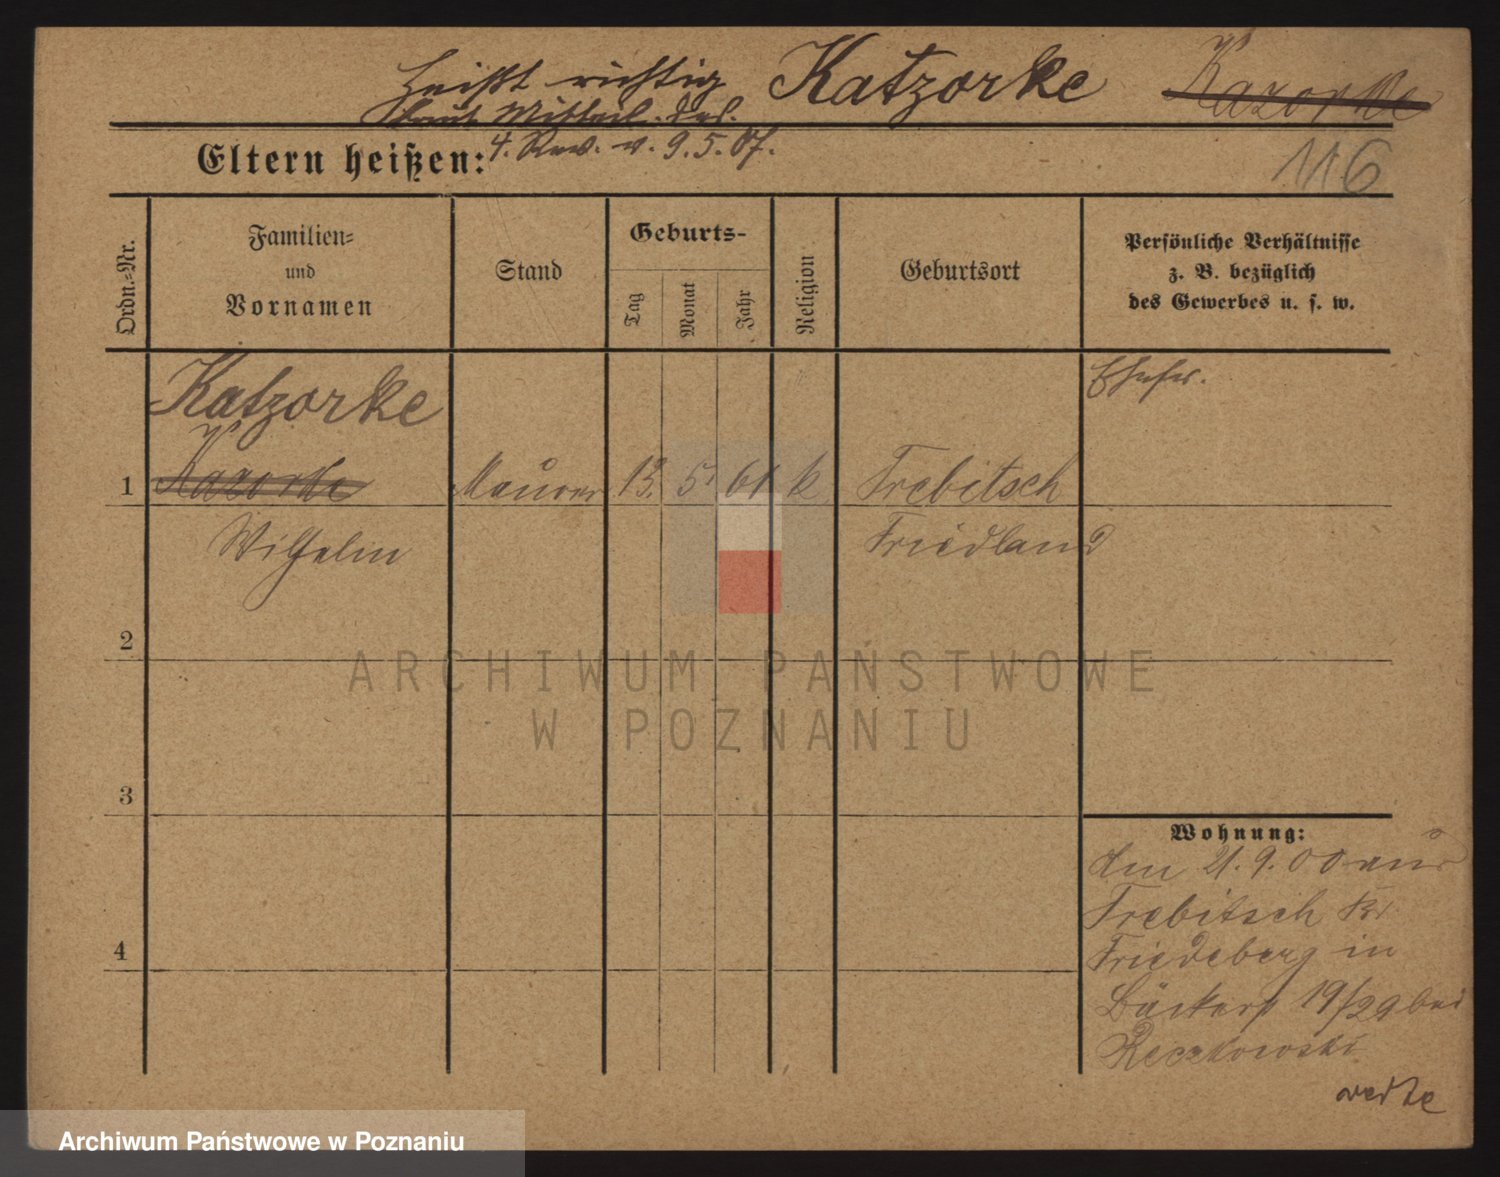 heißt richtig Katzorke Kazorke
laut Mitteil. des
4. Rev. v. 9.5.07.
Eltern heißen:
116
Ordn.-Nr.
Familien-
und
Vornamen
Stand
Geburts-
Tag
Monat
Jahr
Religion
Geburtsort
Persönliche Verhältnisse
z. B. bezüglich
des Gewerbes u. s. w.
Katzorke
Ehefr.
1 Kazorke Maurer 13. 5. 61 k Trebitsch
Wilhelm Friedland
2
3
4
Wohnung:
Am 21.9.00 aus
Trebitsch Kr.
Friedeberg in
Bäckerst 19/29 bei
Reczkowski
ARCHIWUM PAŃSTWOWE
W POZNANIU
Archiwum Państwowe w Poznaniu